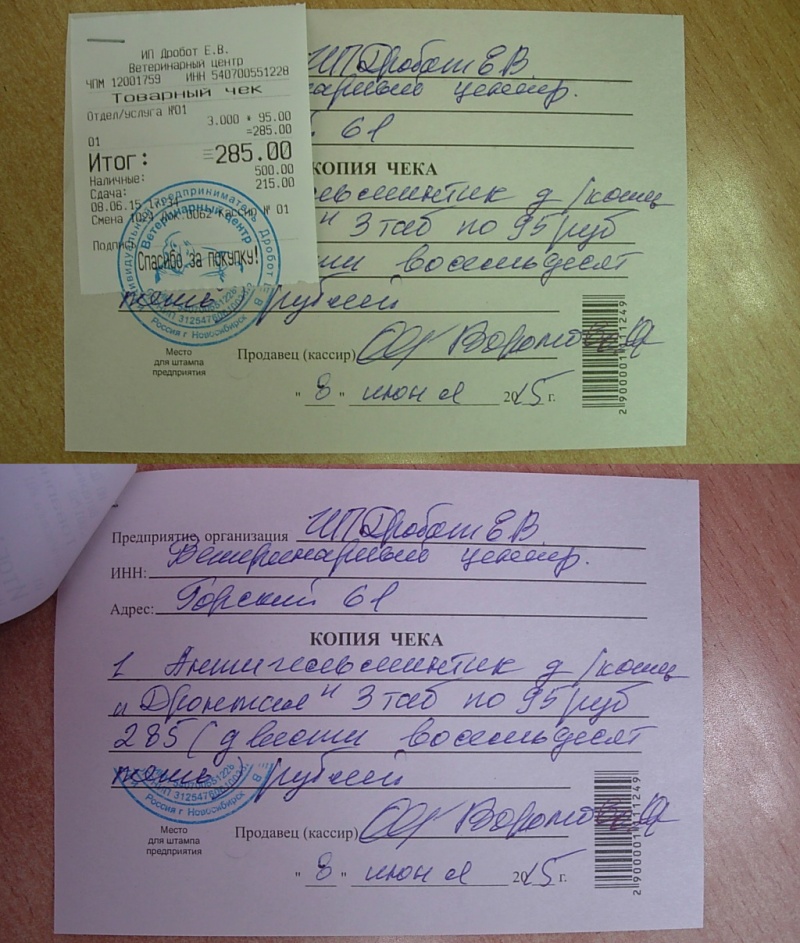 ИП Дробот Е.В.
Ветеринарный центр
ЧПМ 12001759 ИНН 540700551228
Товарный чек
Отдел/услуга №01
3.000 * 95.00
01 =285.00
Итог: =285.00
Наличные: 500.00
Сдача: 215.00
08.06.15
Смена 1020 0062 Кассир № 01
Подпись
Спасибо за покупку!
Ветеринарный центр
Россия г Новосибирск
ИП Дробот Е В.
центр.
61
КОПИЯ ЧЕКА
д/кошек
" 3 таб по 95 руб
восемьдесят
пять) рублей
Место
для штампа
предприятия
Продавец (кассир)
" 8 " июня 2015 г.
2900001111249
Предприятие, организация ИП Дробот Е В.
Ветеринарный центр.
ИНН:
Адрес: Горский 61
КОПИЯ ЧЕКА
1 Антигельминтик д/кошек
"Дронтал" 3 таб по 95 руб
285 (двести восемьдесят
пять) рублей
Россия г Новосибирск
Место
для штампа
предприятия
Продавец (кассир)
" 8 " июня 2015 г.
2900001111249